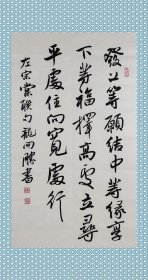 發上等願結中等緣享
下等福擇高處立尋
平處住向寬處行
左宗棠聯句龍開勝書